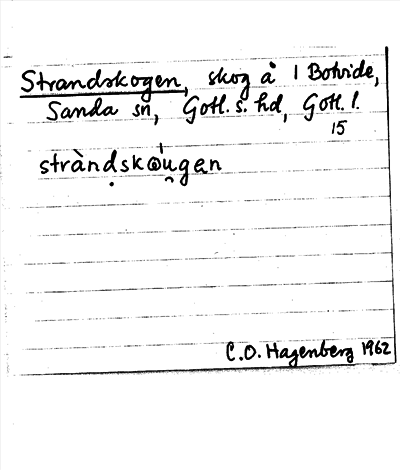 Strandskogen, skog å 1 Botvide,
Sanda sn, Gotl. s. hd, Gotl. l.
15
stràndskὼu̯gen
C.O. Hagenberg 1962